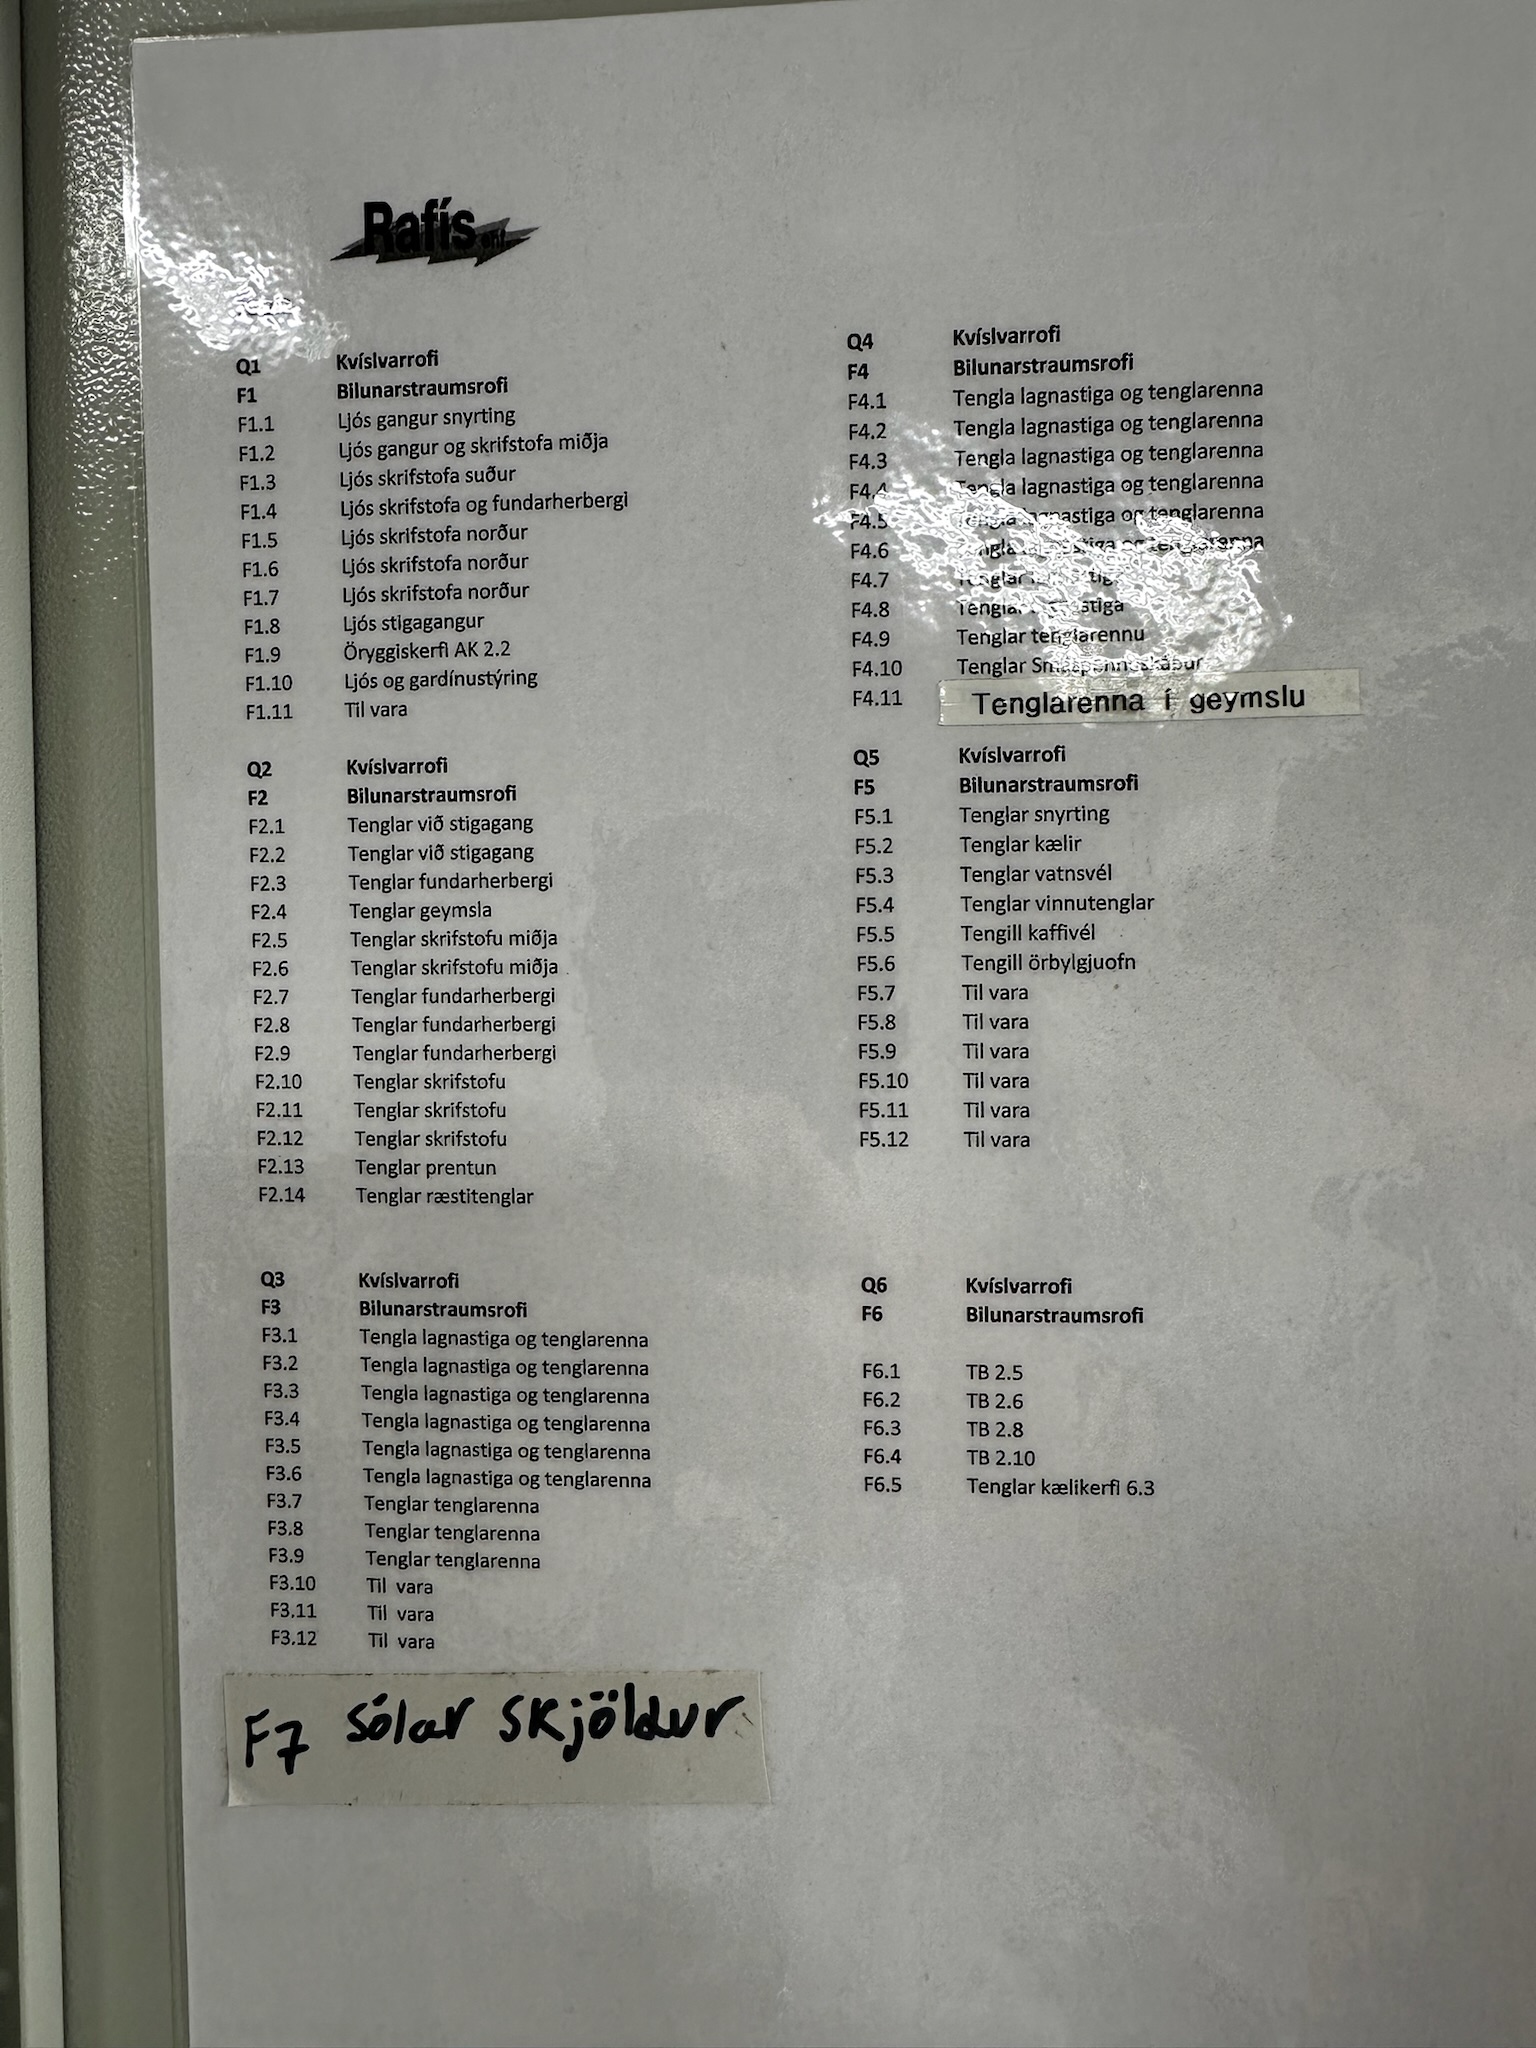 Rafís ehf
Q1 Kvíslvarrofi
F1 Bilunarstraumsrofi
F1.1 Ljós gangur snyrting
F1.2 Ljós gangur og skrifstofa miðja
F1.3 Ljós skrifstofa suður
F1.4 Ljós skrifstofa og fundarherbergi
F1.5 Ljós skrifstofa norður
F1.6 Ljós skrifstofa norður
F1.7 Ljós skrifstofa norður
F1.8 Ljós stigagangur
F1.9 Öryggiskerfi AK 2.2
F1.10 Ljós og gardínustýring
F1.11 Til vara
Q2 Kvíslvarrofi
F2 Bilunarstraumsrofi
F2.1 Tenglar við stigagang
F2.2 Tenglar við stigagang
F2.3 Tenglar fundarherbergi
F2.4 Tenglar geymsla
F2.5 Tenglar skrifstofu miðja
F2.6 Tenglar skrifstofu miðja
F2.7 Tenglar fundarherbergi
F2.8 Tenglar fundarherbergi
F2.9 Tenglar fundarherbergi
F2.10 Tenglar skrifstofu
F2.11 Tenglar skrifstofu
F2.12 Tenglar skrifstofu
F2.13 Tenglar prentun
F2.14 Tenglar ræstitenglar
Q3 Kvíslvarrofi
F3 Bilunarstraumsrofi
F3.1 Tengla lagnastiga og tenglarenna
F3.2 Tengla lagnastiga og tenglarenna
F3.3 Tengla lagnastiga og tenglarenna
F3.4 Tengla lagnastiga og tenglarenna
F3.5 Tengla lagnastiga og tenglarenna
F3.6 Tengla lagnastiga og tenglarenna
F3.7 Tenglar tenglarenna
F3.8 Tenglar tenglarenna
F3.9 Tenglar tenglarenna
F3.10 Til vara
F3.11 Til vara
F3.12 Til vara
F7 Sólar skjöldur
Q4 Kvíslvarrofi
F4 Bilunarstraumsrofi
F4.1 Tengla lagnastiga og tenglarenna
F4.2 Tengla lagnastiga og tenglarenna
F4.3 Tengla lagnastiga og tenglarenna
F4.4 Tengla lagnastiga og tenglarenna
F4.5 Tengla lagnastiga og tenglarenna
F4.6 Tengla lagnastiga og tenglarenna
F4.7 Tenglar
F4.8 Tenglar lagnastiga
F4.9 Tenglar tenglarennu
F4.10 Tenglar Smáspennuskápur
F4.11 Tenglarenna í geymslu
Q5 Kvíslvarrofi
F5 Bilunarstraumsrofi
F5.1 Tenglar snyrting
F5.2 Tenglar kælir
F5.3 Tenglar vatnsvél
F5.4 Tenglar vinnutenglar
F5.5 Tengill kaffivél
F5.6 Tengill örbylgjuofn
F5.7 Til vara
F5.8 Til vara
F5.9 Til vara
F5.10 Til vara
F5.11 Til vara
F5.12 Til vara
Q6 Kvíslvarrofi
F6 Bilunarstraumsrofi
F6.1 TB 2.5
F6.2 TB 2.6
F6.3 TB 2.8
F6.4 TB 2.10
F6.5 Tenglar kælikerfi 6.3